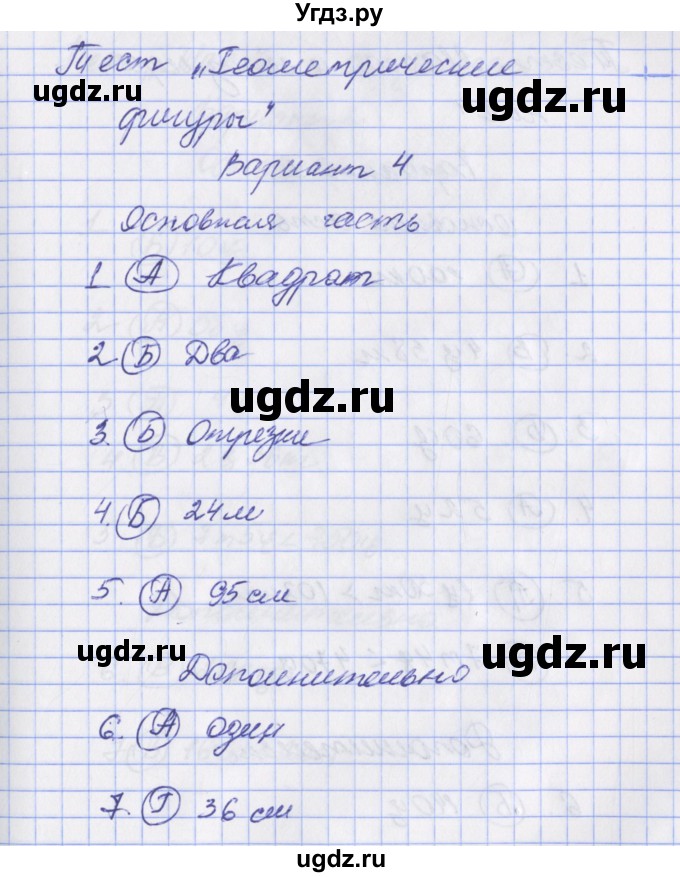 Угдз.ру
Тест „Геометрические
ugdz.ru ugdz.ru
фигуры"
Вариант 4
Основная часть
1 А Квадрат
2 Б Два
ugdz.ru
3. Б Отрезки
4. Б 24 м
5. А 95 см
ugdz.ru ugdz.ru
Дополнительно
6. А один
7. Г 36 см
ugdz.ru